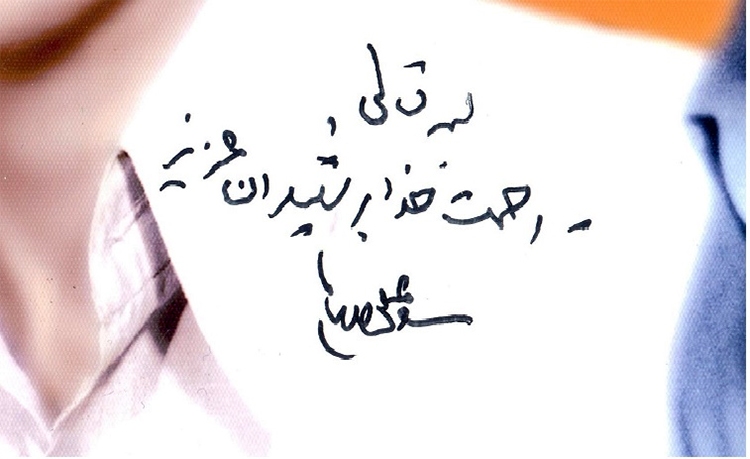 بسمه تعالی
رحمت خدا بر شهیدان عزیز